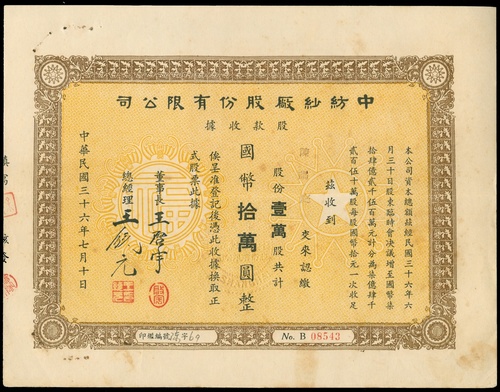 中紡紗廠股份有限公司
股款收據
本公司資本總額茲經民國三十六年六
月三十日股東臨時會决議增至國幣柒
拾肆億貳千伍百萬元計分為柒億肆千
貳百伍十萬股每股國幣拾元一次收足
茲收到
交來認繳
股份壹萬股共計
國幣拾萬圓整
俟呈准登記後憑此收據換取正
式股票此據
董事長 王啓宇
總經理 王
元
中華民國三十六年七月十日
印鑑編號
字69
No. B 08543